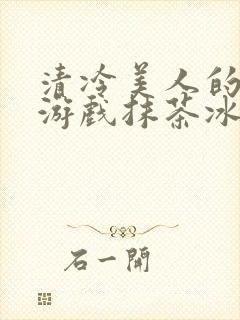 清冷美人的
游戏抹茶冰
石一開